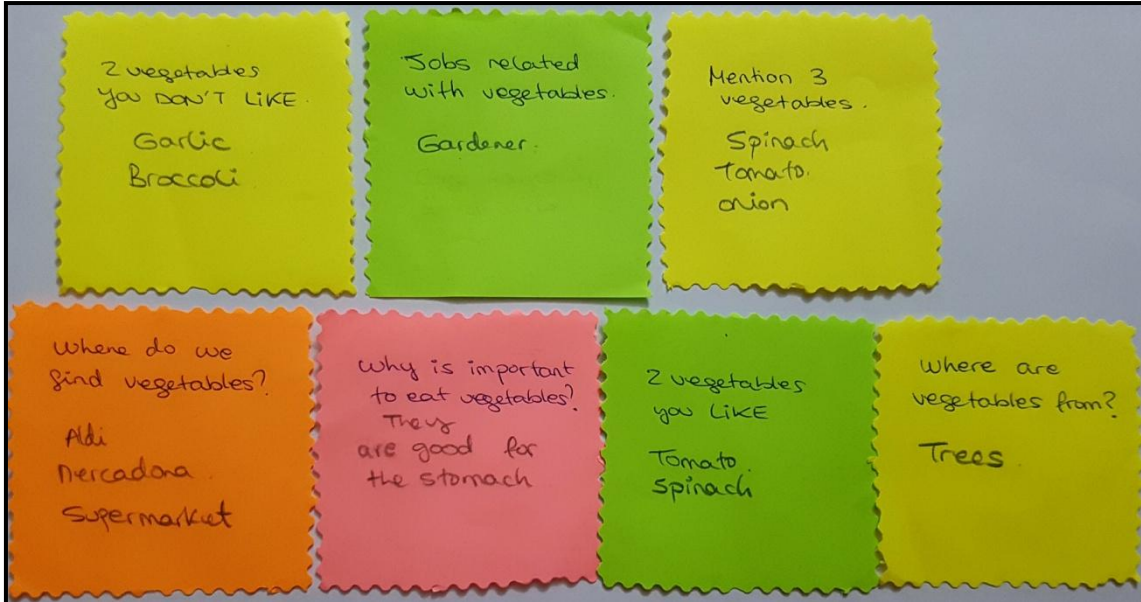 2 vegetables
you DON'T LIKE.
Garlic
Broccoli
Jobs related
with vegetables.
Gardener.
Mention 3
vegetables.
Spinach
Tomato.
onion
Where do we
find vegetables?
Aldi
Mercadona.
Supermarket
Why is important
to eat vegetables?
They
are good for
the stomach
2 vegetables
you LIKE
Tomato.
Spinach
Where are
vegetables from?
Trees.